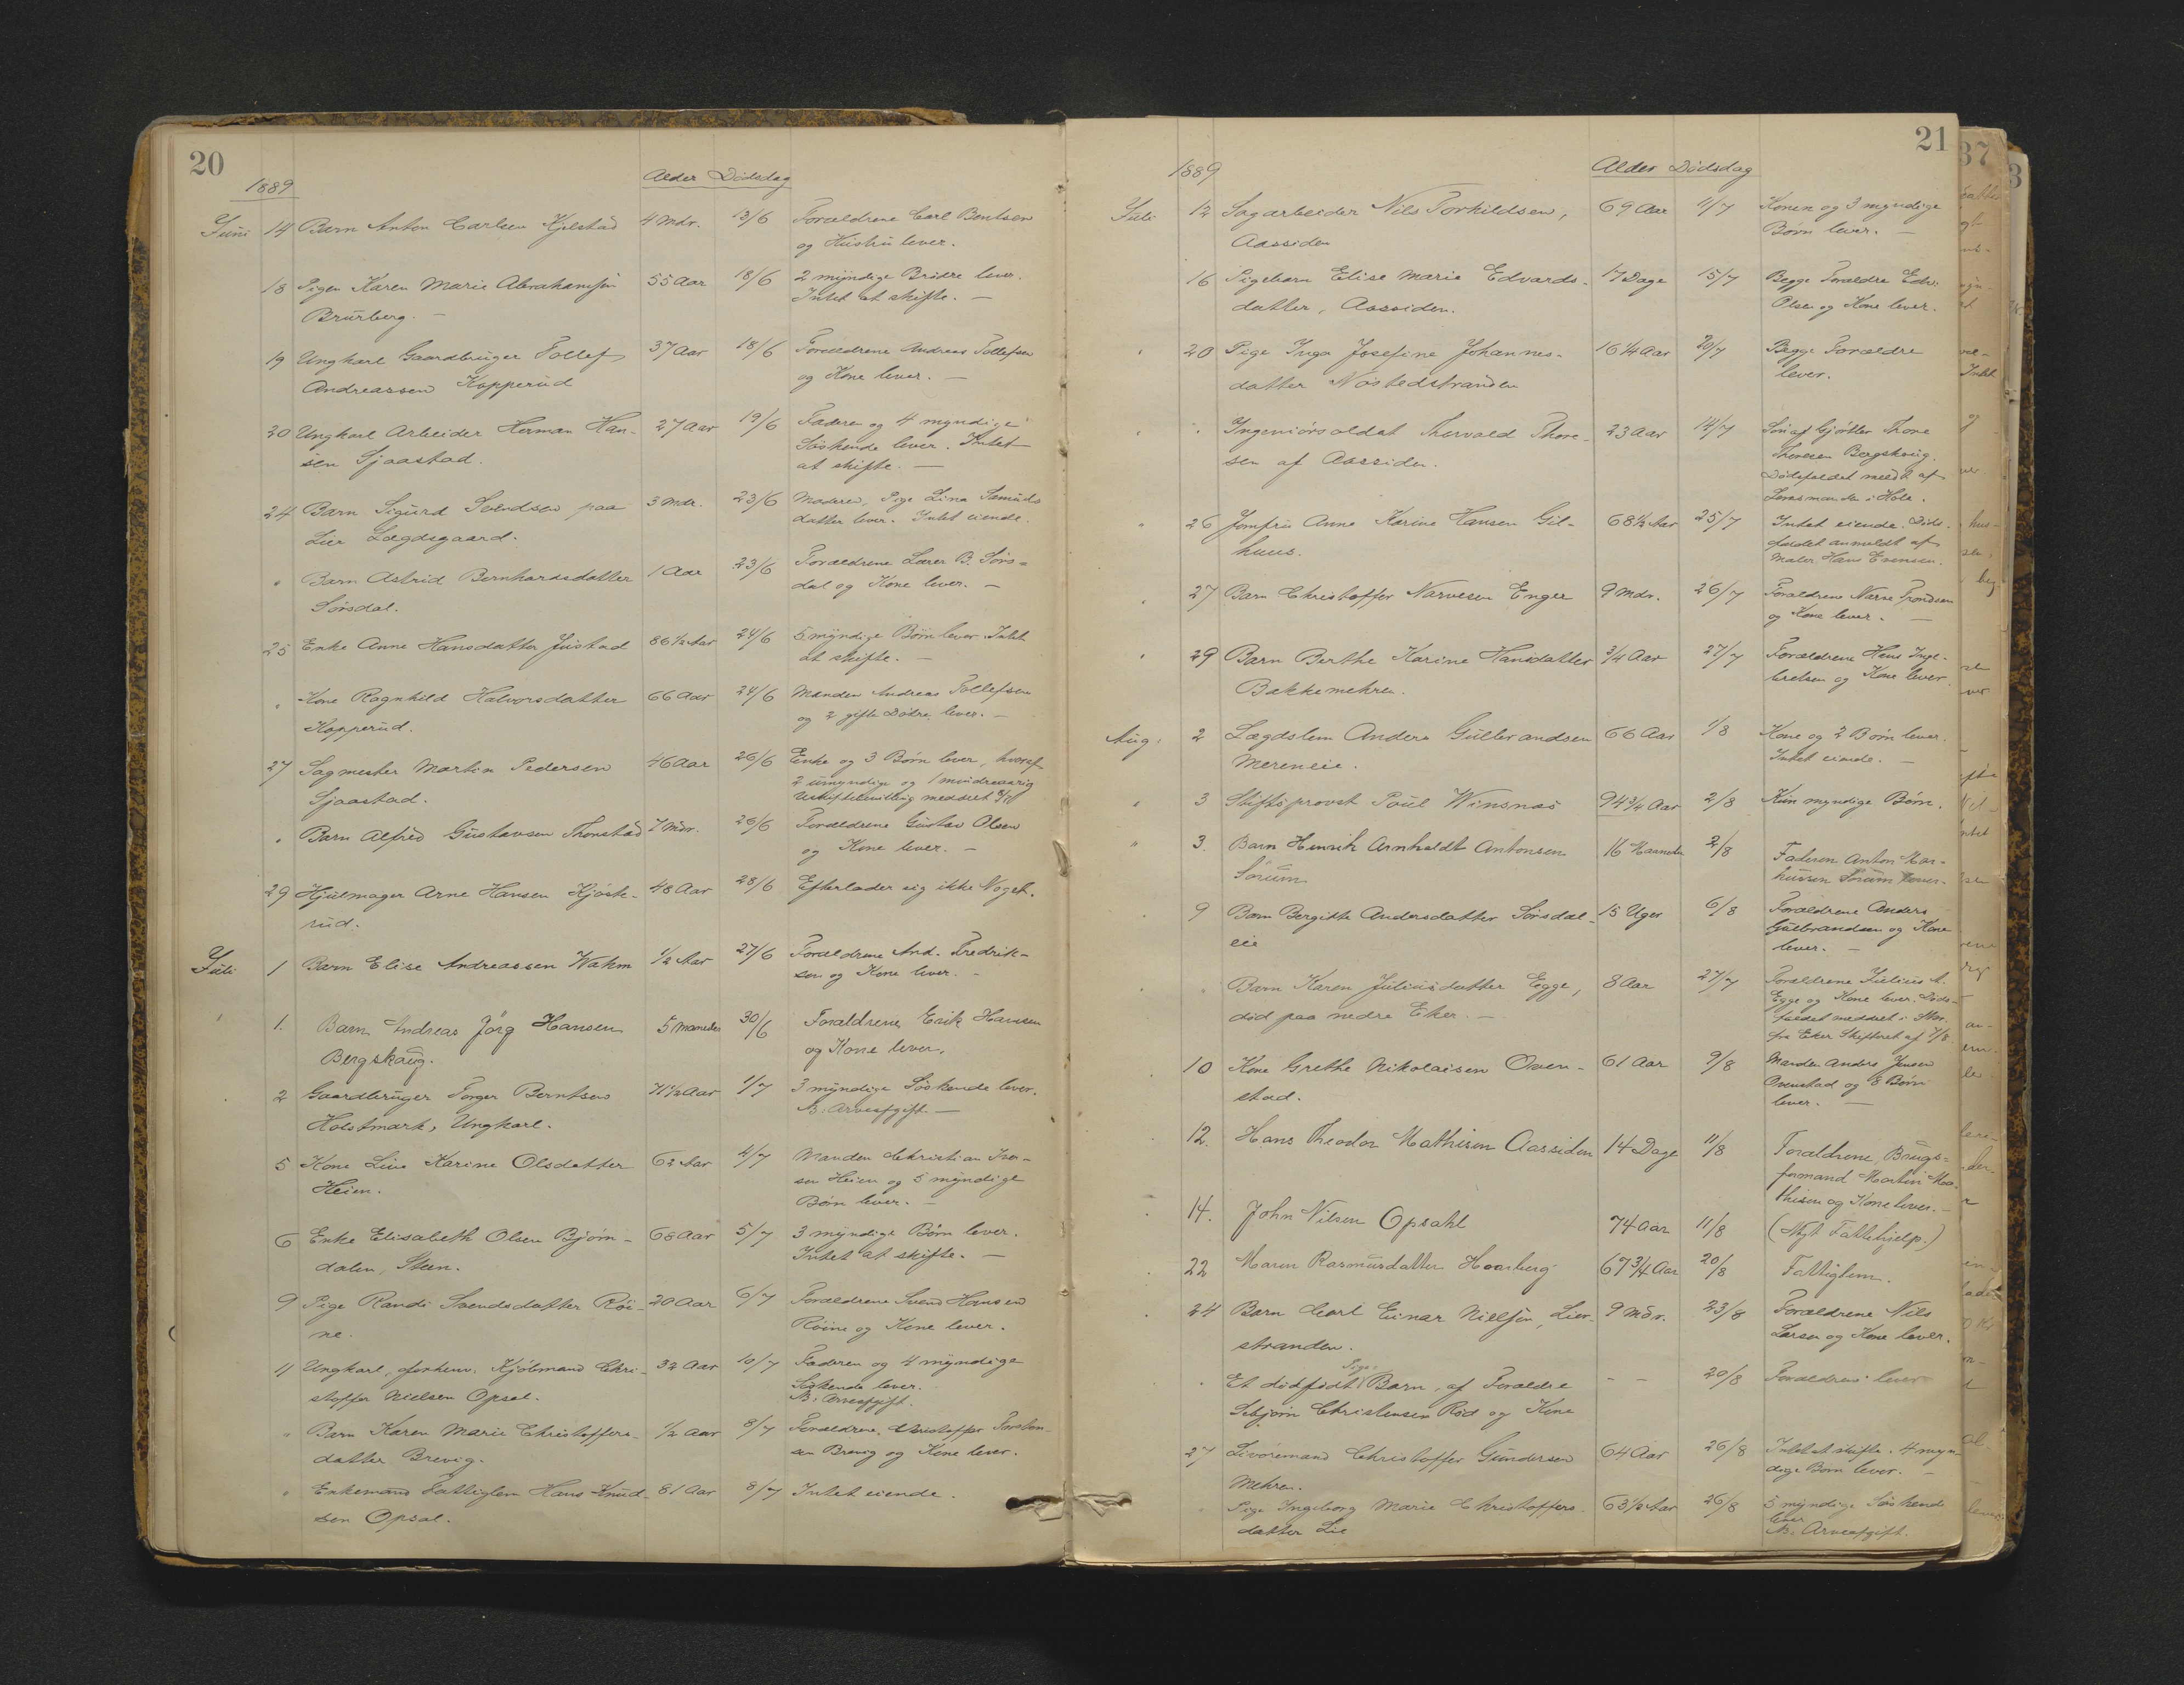 20
1889
Alder Dödsdag
Juni 14 Barn Anton Carlsen Kjelstad 4 Mdr. 13/6 Forældrene Carl Bentsen
og Hustru lever.
18 Pigen Karen Marie Abrahamsen 55 Aar 18/6 2 myndige Brödre lever.
Brurberg. — Intet at skifte. —
19 Ungkarl Gaardbruger Tollef 37 Aar 18/6 Forældrene Andreas Tollefsen
Andreassen Kopperud og Kone lever. —
20 Ungkarl Arbeider Herman Han- 27 Aar 19/6 Faderen og 4 myndige
sen Sjaastad. Söskende lever. Intet
at skifte. —
24 Barn Sigurd Svendsen paa 3 Mdr. 23/6 Moderen, Pige Lina Samuels
Lier Lægdsgaard. datter lever. Intet eiende.
" Barn Astrid Bernhardsdatter 1 Aar 23/6 Forældrene Lærer B. Sörs-
Sörsdal. dal og Kone lever. —
25 Enke Anne Hansdatter Justad 86 1/2 Aar 24/6 5 myndige Börn lever. Intet
at skifte. —
" Kone Ragnhild Halvorsdatter 66 Aar 24/6 Manden Andreas Tollefsen
Kopperud. og 2 gifte Dötre lever. —
27 Sagmester Martin Pedersen 46 Aar 26/6 Enke og 3 Börn lever, hvoraf
Sjaastad. 2 umyndige og 1 mindreaarig
meddelt
" Barn Alfred Gustavsen Thronstad 7 Mdr. 26/6 Forældrene Gustav Olsen
og Kone lever. —
29 Hjulmager Arne Hansen Kjöste- 48 Aar 28/6 Efterlader sig ikke Noget.
rud.
Juli 1 Barn Elise Andreassen Wahm 1/2 Aar 27/6 Forældrene And. Fredrik-
sen og Kone lever. —
1. Barn Andreas Jörg Hansen 5 Maaneder 30/6 Forældrene Erik Hansen
Bergskaug. og Kone lever.
2 Gaardbruger Torger Berntsen 71 1/2 Aar 1/7 3 myndige Söskende lever.
Holstmark, Ungkarl. N. Arveafgift. —
5 Kone Live Karine Olsdatter 62 Aar 4/7 Manden Christian Iver-
Heien. sen Heien og 5 myndige
Börn lever. —
6 Enke Elisabeth Olsen Björn- 68 Aar 5/7 3 myndige Börn lever.
dalen, Steen. Intet at skifte. —
9 Pige Randi Svendsdatter Röi- 20 Aar 6/7 Forældrene Svend Hansen
ne. Röine og Kone lever.
11 Ungkarl, forhenv. Kjöbmand Chri- 32 Aar 10/7 Faderen og 4 myndige
stoffer Nielsen Opsal. Söskende lever.
N. Arveafgift.
" Barn Karen Marie Christoffers- 1/2 Aar 8/7 Forældrene, Christoffer
datter Brevig. sen Brevig og Kone lever.
" Enkemand Fattiglem Hans Knud- 81 Aar 8/7 Intet eiende.
sen Opsal.
21
1889
Alder Dödsdag
Juli 12 Sagarbeider Nils Torkildsen, 69 Aar 11/7 Konen og 3 myndige
Aassiden Börn lever. —
16 Pigebarn Elise Marie Edvards- 17 Dage 15/7 Begge Forældre Edv.
datter, Aassiden. Olsen og Kone lever.
" 20 Pige Inga Josefine Johannes- 16 1/4 Aar 20/7 Begge Forældre
datter Nöstedstranden lever.
" " Ingeniörsoldat Thorvald Thore- 23 Aar 14/7 Sön af Gjörtler Thore
sen af Aassiden. Thoresen Bergskaug.
Dödsfaldet meddt af
Lensmanden i Hole.
" 26 Jomfru Anne Karine Hansen Gil- 68 1/2 Aar 25/7 Intet eiende. Döds-
huus. faldet anmeldt af
Maler Hans Evensen.
" 27 Barn Christoffer Narvesen Enger 9 Mdr. 26/7 Forældrene Narve Trondsen
og Kone lever. —
" 29 Barn Berthe Karine Hansdatter 3/4 Aar 27/7 Forældrene Hans Inge-
Bakkemehren. bretsen og Kone lever.
Aug. 2 Lægdslem Anders Gulbrandsen 66 Aar 1/8 Kone og 2 Börn lever.
Mereneie. Intet eiende. —
" 3 Stiftsprovst Poul Winsnæs 94 3/4 Aar 2/8 Kun myndige Börn.
" 3. Barn Henrik Arnholdt Antonsen 16 Maaneder 2/8 Faderen Anton Mar-
Sörum husen Sörum lever.
9 Barn Bergitte Andersdatter Sörsdal- 15 Uger 6/8 Forældrene Anders
eie Gulbrandsen og Kone
lever. —
" Barn Karen Juliusdatter Egge, 8 Aar 27/7 Forældrene Julius A.
död paa nedre Eker. — Egge og Kone lever. Döds-
faldet meddelt i Skr.
fra Eker Skifteret af 7/8.
10 Kone Grethe Nikolaisen Oven- 61 Aar 9/8 Manden Anders Jensen
stad. Ovenstad og 8 Börn
lever. —
12. Hans Theodor Mathisen Aassiden 14 Dage 11/8 Forældrene, Brugs-
formand Martin Ma-
thisen og Kone lever. —
14. John Nilsen Opsahl 74 Aar 11/8 (Nyt Fattighjelp.)
22 Maren Rasmusdatter Haarberg 67 3/4 Aar 20/8 Fattiglem.
24 Barn Carl Einar Nielsen, Lier- 9 Mdr. 23/8 Forældrene Nils
stranden. Larsen og Kone lever.
" Et dödfödt Pige Barn, af Forældre — — 20/8 Forældrene lever
Christensen Röd og Kone
27 Livöremand Christoffer Gundersen 64 Aar 26/8 Intet at skifte. 4 myn-
Mehren. dige Börn lever. —
" Pige Ingeborg Marie Christoffers- 63 1/2 Aar 26/8 5 myndige Söskende
datter Lie lever
N. Arveafgift.
37